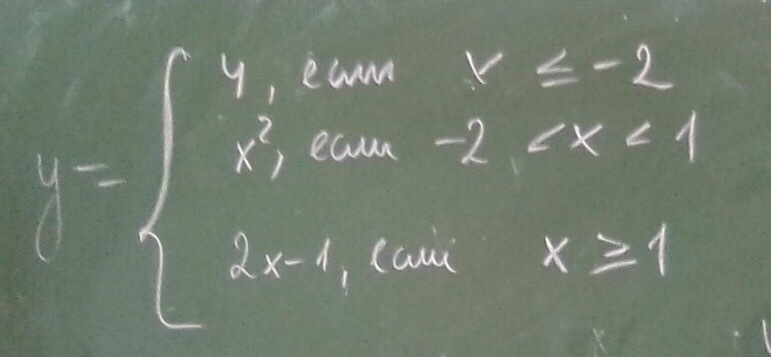 y = { 4, если x ≤ -2
x², если -2 < x < 1
2x-1, если x ≥ 1